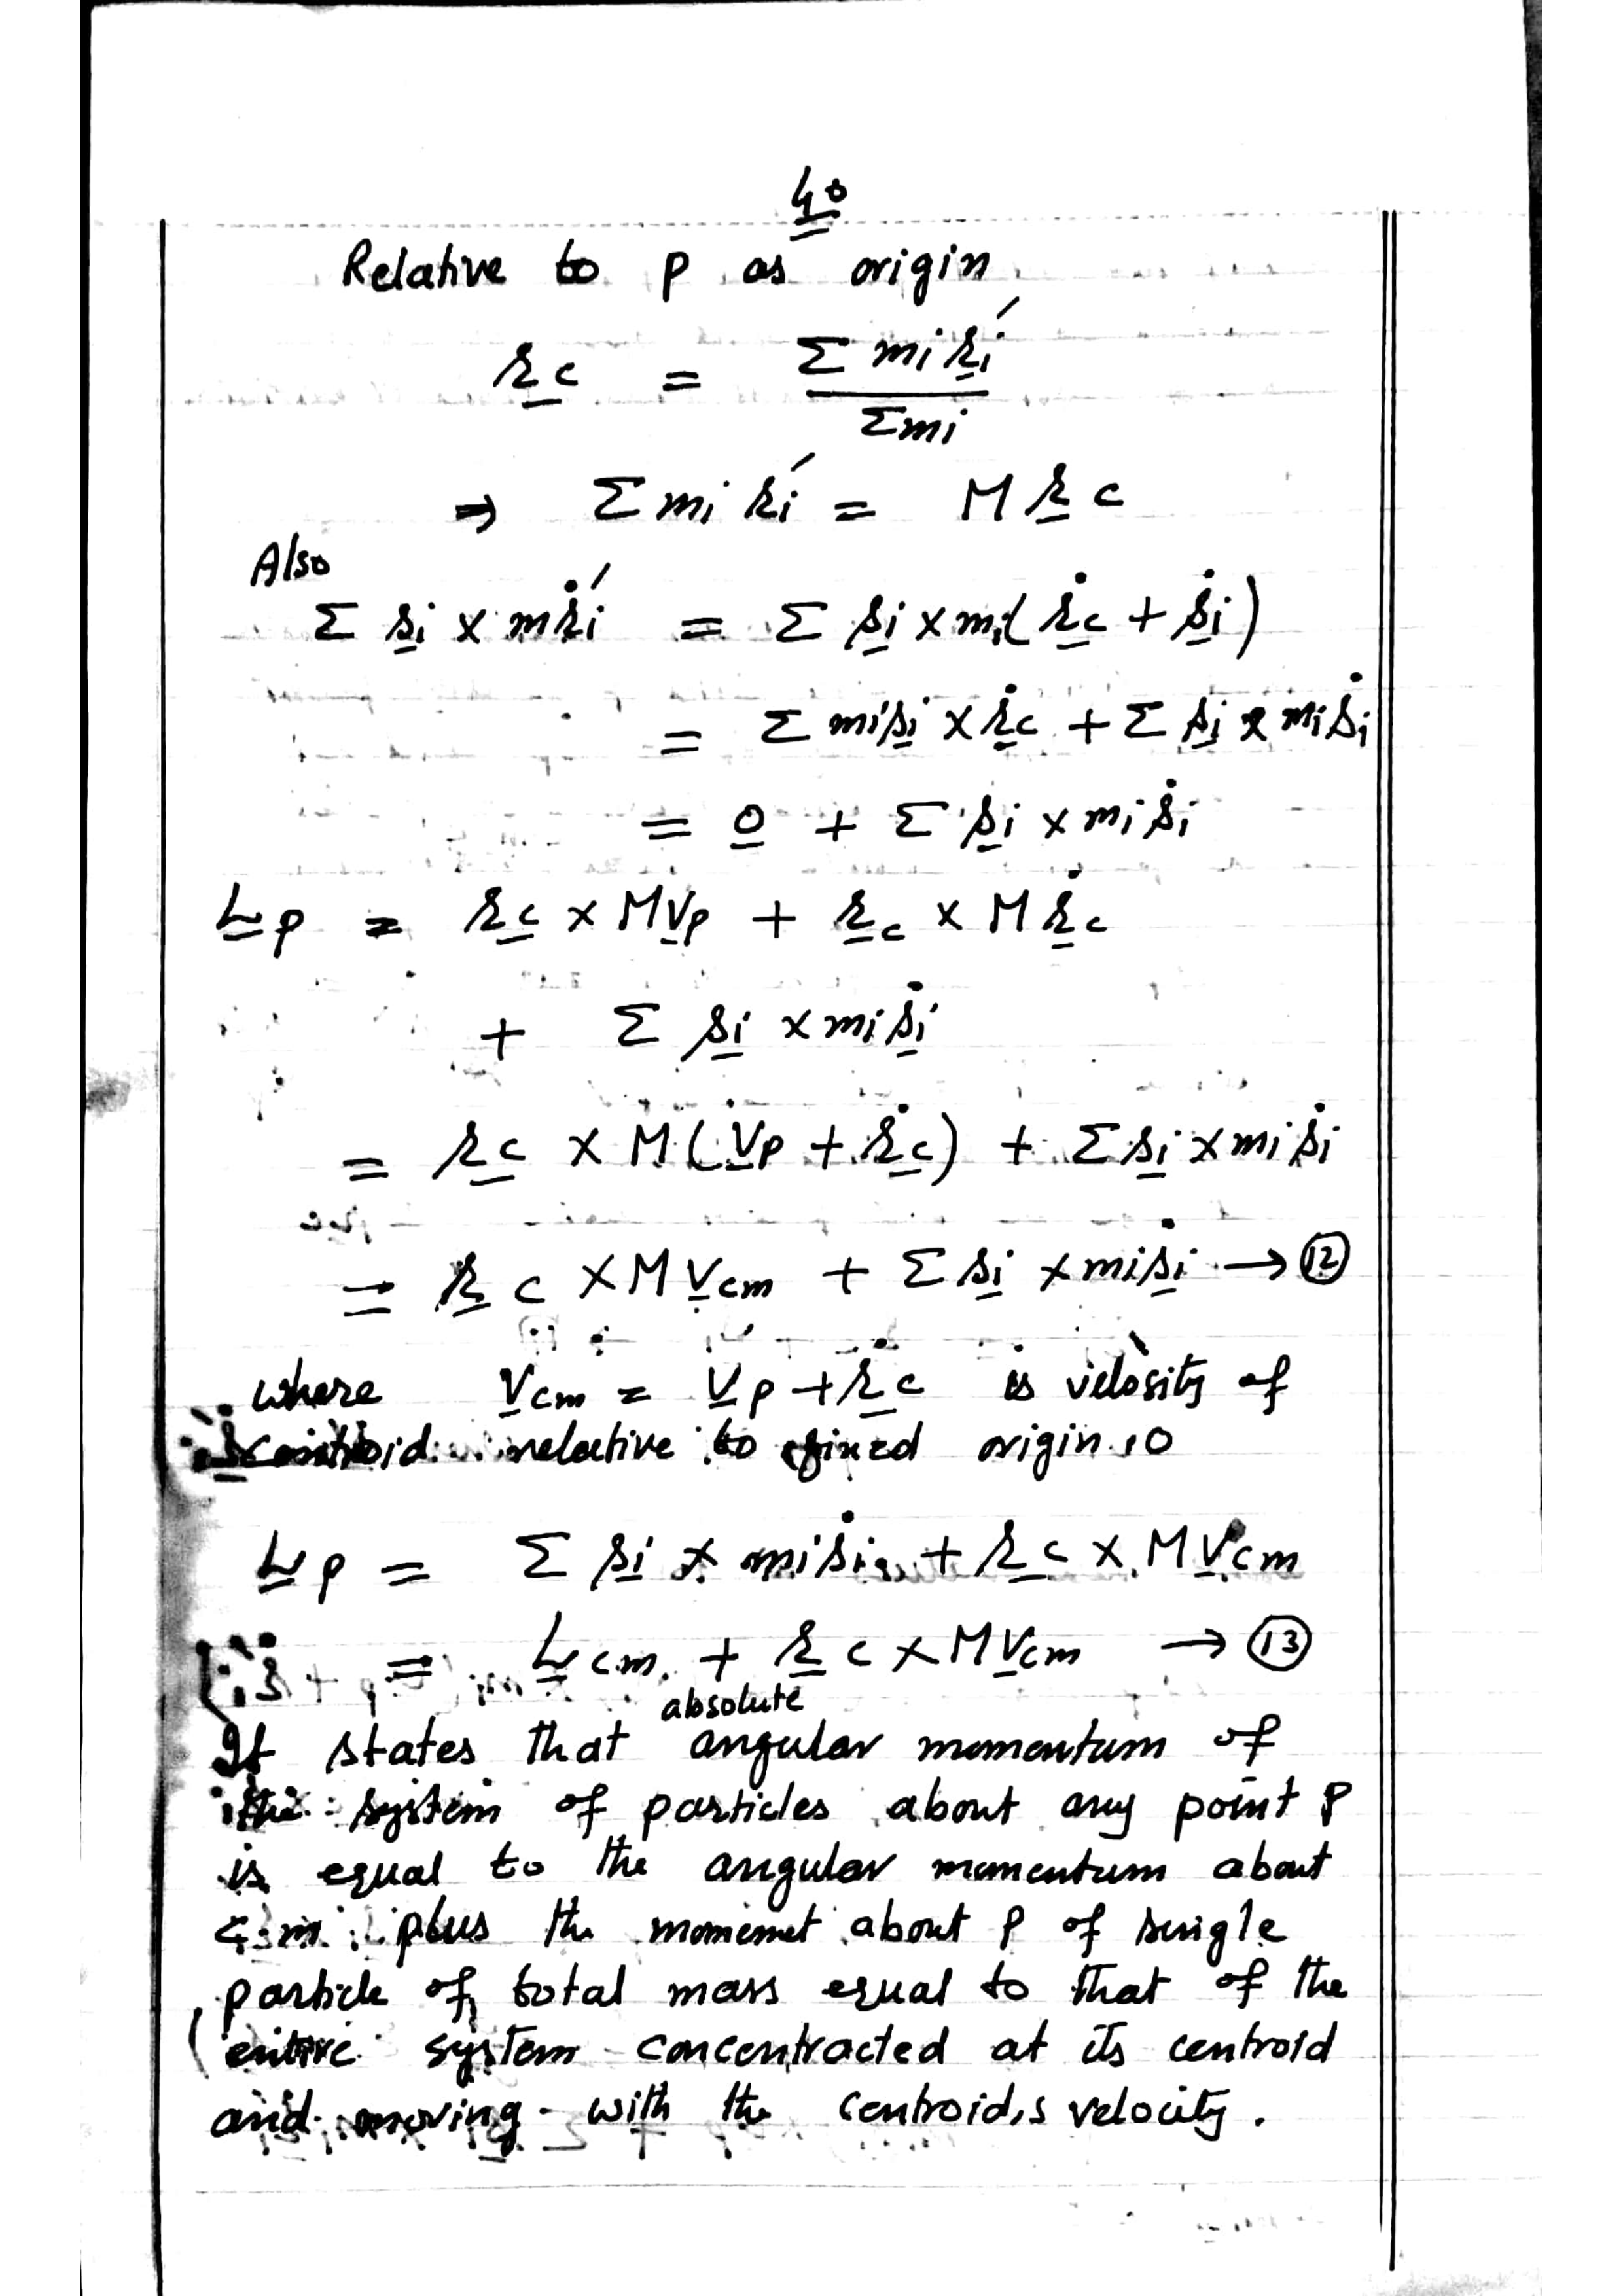 40
Relative to p as origin
r̲c = Σ mi r̲i′ / Σmi
⇒ Σ mi ri′ = M r̲ c
Also
Σ s̲i × m ṙi′ = Σ s̲i × mi( ṙ̲c + ṡ̲i )
= Σ mi s̲i × ṙ̲c + Σ s̲i × mi ṡi
= 0̲ + Σ s̲i × mi ṡi
L̲p = r̲c × M V̲p + r̲c × M ṙ̲c
+ Σ s̲i × mi ṡ̲i
= r̲c × M ( V̲p + ṙ̲c ) + Σ s̲i × mi ṡi
= r̲ c × M V̲cm + Σ s̲i × mi ṡ̲i → ⑫
where V̲cm = V̲p + ṙ̲c is velosity of
centroid relative to fixed origin 'O
L̲p = Σ s̲i × mi ṡi + r̲c × M V̲cm
= L̲cm + r̲ c × M V̲cm → ⑬
absolute
It states that angular momentum of
the system of particles about any point P
is equal to the angular momentum about
c.m plus the momemet about P of single
particle of total mass equal to that of the
entire system concentracted at its centroid
and moving with the centroid,s velocity.